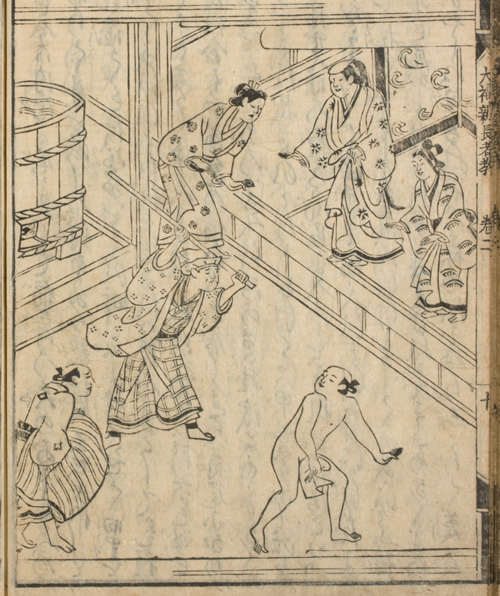 大福新長者教
巻二
十